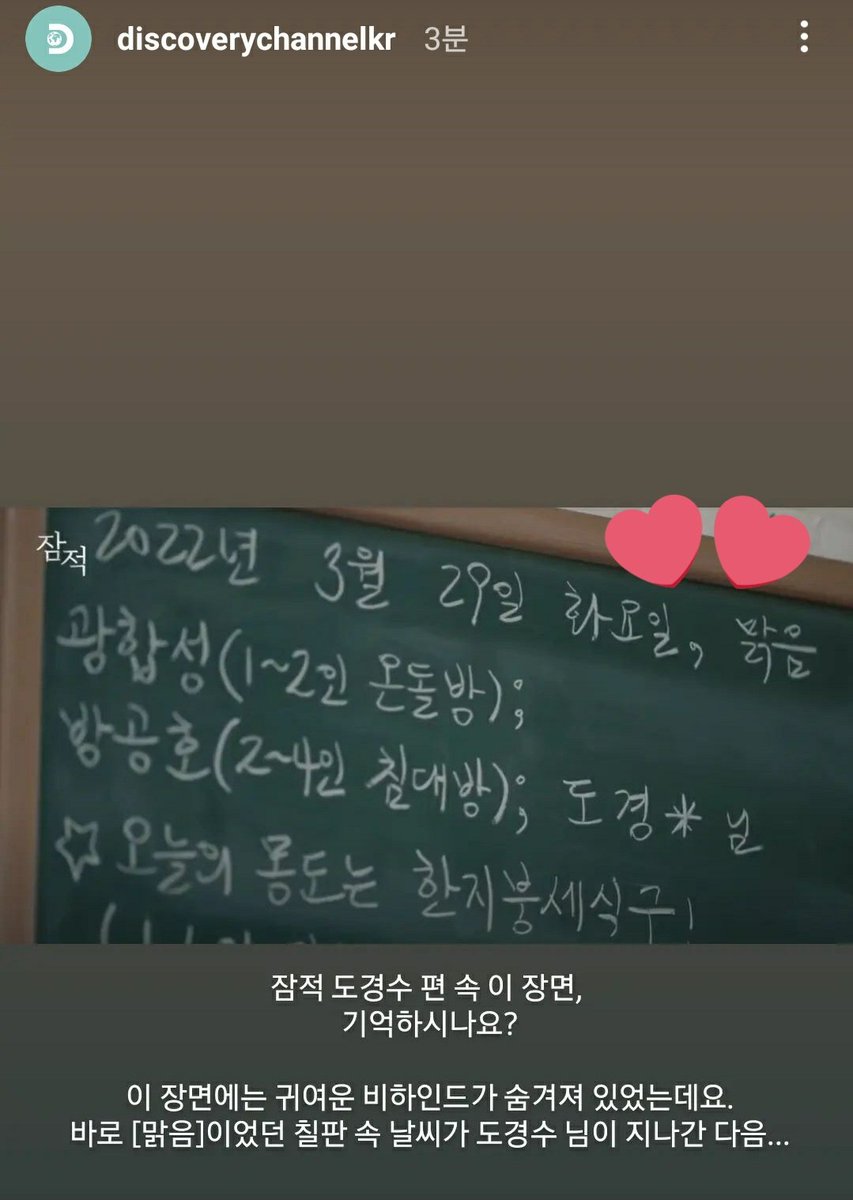 discoverychannelkr 3분
잠적
2022년 3월 29일 화요일, 맑음
광합성(1~2인 온돌방);
방공호(2~4인 침대방); 도경* 님
☆ 오늘의 몽도는 한지붕세식구!
잠적 도경수 편 속 이 장면,
기억하시나요?
이 장면에는 귀여운 비하인드가 숨겨져 있었는데요.
바로 [맑음]이었던 칠판 속 날씨가 도경수 님이 지나간 다음...